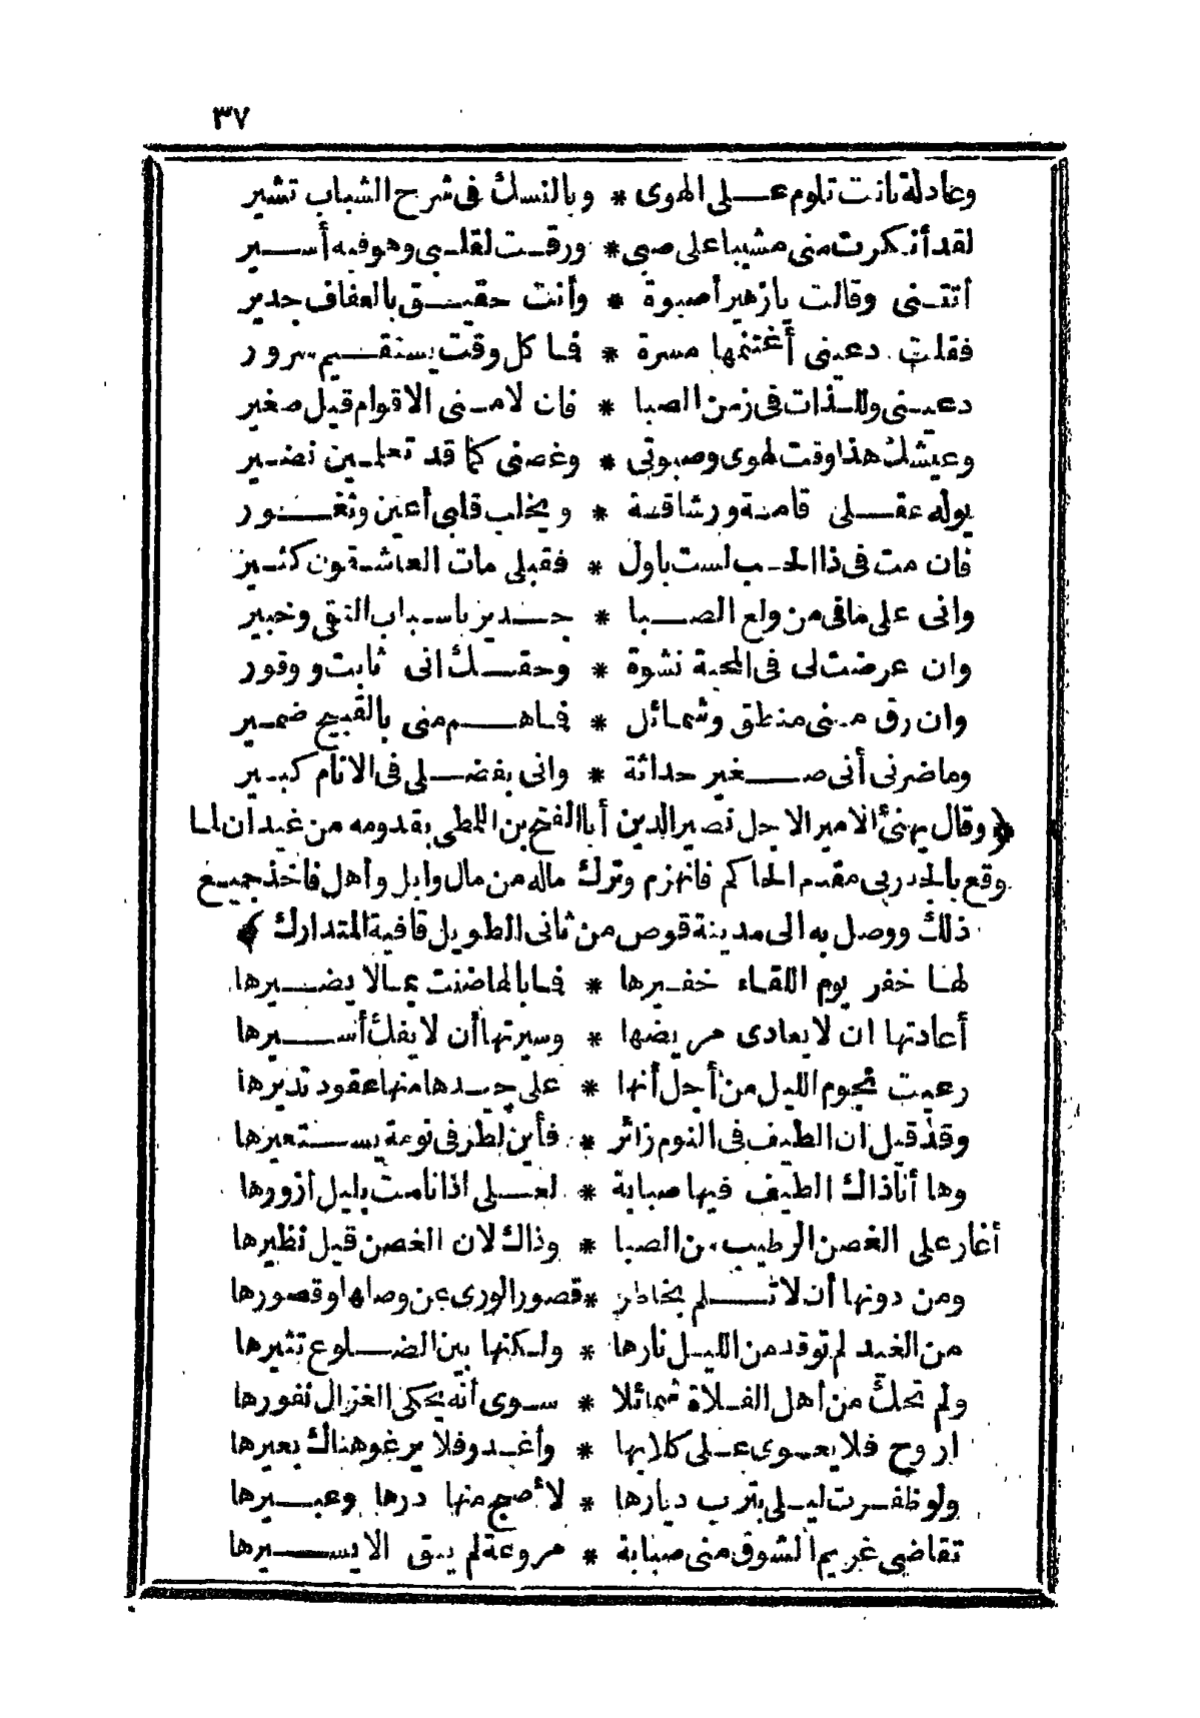 ٣٧
وعاذلة باتت تلوم عـلى الهوى * وبالنسك فى شرح الشباب تشير
لقد أنكرت منى مشيبا على صبى * ورقت لقلبى وهو فيه أسير
أتتنى وقالت يا زهير أصبوة * وأنت حقيق بالعفاف جدير
فقلت دعينى أغتنمها مسرة * فما كل وقت يستقيم سرور
دعينى واللذات فى زمن الصبا * فان لامنى الاقوام قيل صغير
وعيشك هذا وقت لهوى وصبوتى * وغصنى كما قد تعلمين نضير
يوله عقلى قامة ورشاقة * ويخلب قلبى أعين وثغور
فان مت فى ذا الحب لست بأول * فقبلى مات العاشقون كثير
وانى على مافى من ولع الصبا * جدير باسباب التقى وخبير
وان عرضت لى فى المحبة نشوة * وحقك انى ثابت ووقور
وان رق منى منطق وشمائل * فما هم منى بالقبيح ضمير
وما ضرنى أنى صغير حداثة * وانى بفضلى فى الانام كبير
﴿ وقال يهنئ الامير الاجل نصير الدين أبا الفتح بن اللمطى بقدومه من غيذان لما
وقع بالجدربى مقدم الحاكم فانهزم وترك ماله من مال وابل وأهل فاخذ جميع
ذلك ووصل به الى مدينة قوص من ثانى الطويل قافية المتدارك ﴾
لها خفر يوم اللقاء خفيرها * فما بالها ضنت بمالا يضيرها
أعادتها ان لا يعادى مريضها * وسيرتها أن لا يفك أسيرها
رعيت نجوم الليل من أجل أنها * على جيدها منها عقود تديرها
وقد قيل ان الطيف فى النوم زائر * فأين لطرفى نومة يستعيرها
وها أنا ذاك الطيف فيها صبابة * لعلى اذا نامت بليل أزورها
أغار على الغصن الرطيب من الصبا * وذاك لان الغصن قيل نظيرها
ومن دونها أن لا تلم بخاطر * قصور الورى عن وصلها وقصورها
من الغيد لم توقد من الليل نارها * ولكنها بين الضلوع تثيرها
ولم تحك من أهل الفلاة شمائلا * سوى أنه يحكى الغزال نفورها
اروح فلا يعوى على كلابها * وأغدو فلا يرغو هناك بعيرها
ولو ظفرت ليلى بترب ديارها * لأصبح منها درها وعبيرها
تقاضى غريم الشوق منى صبابة * مروعة لم يبق الا يسيرها